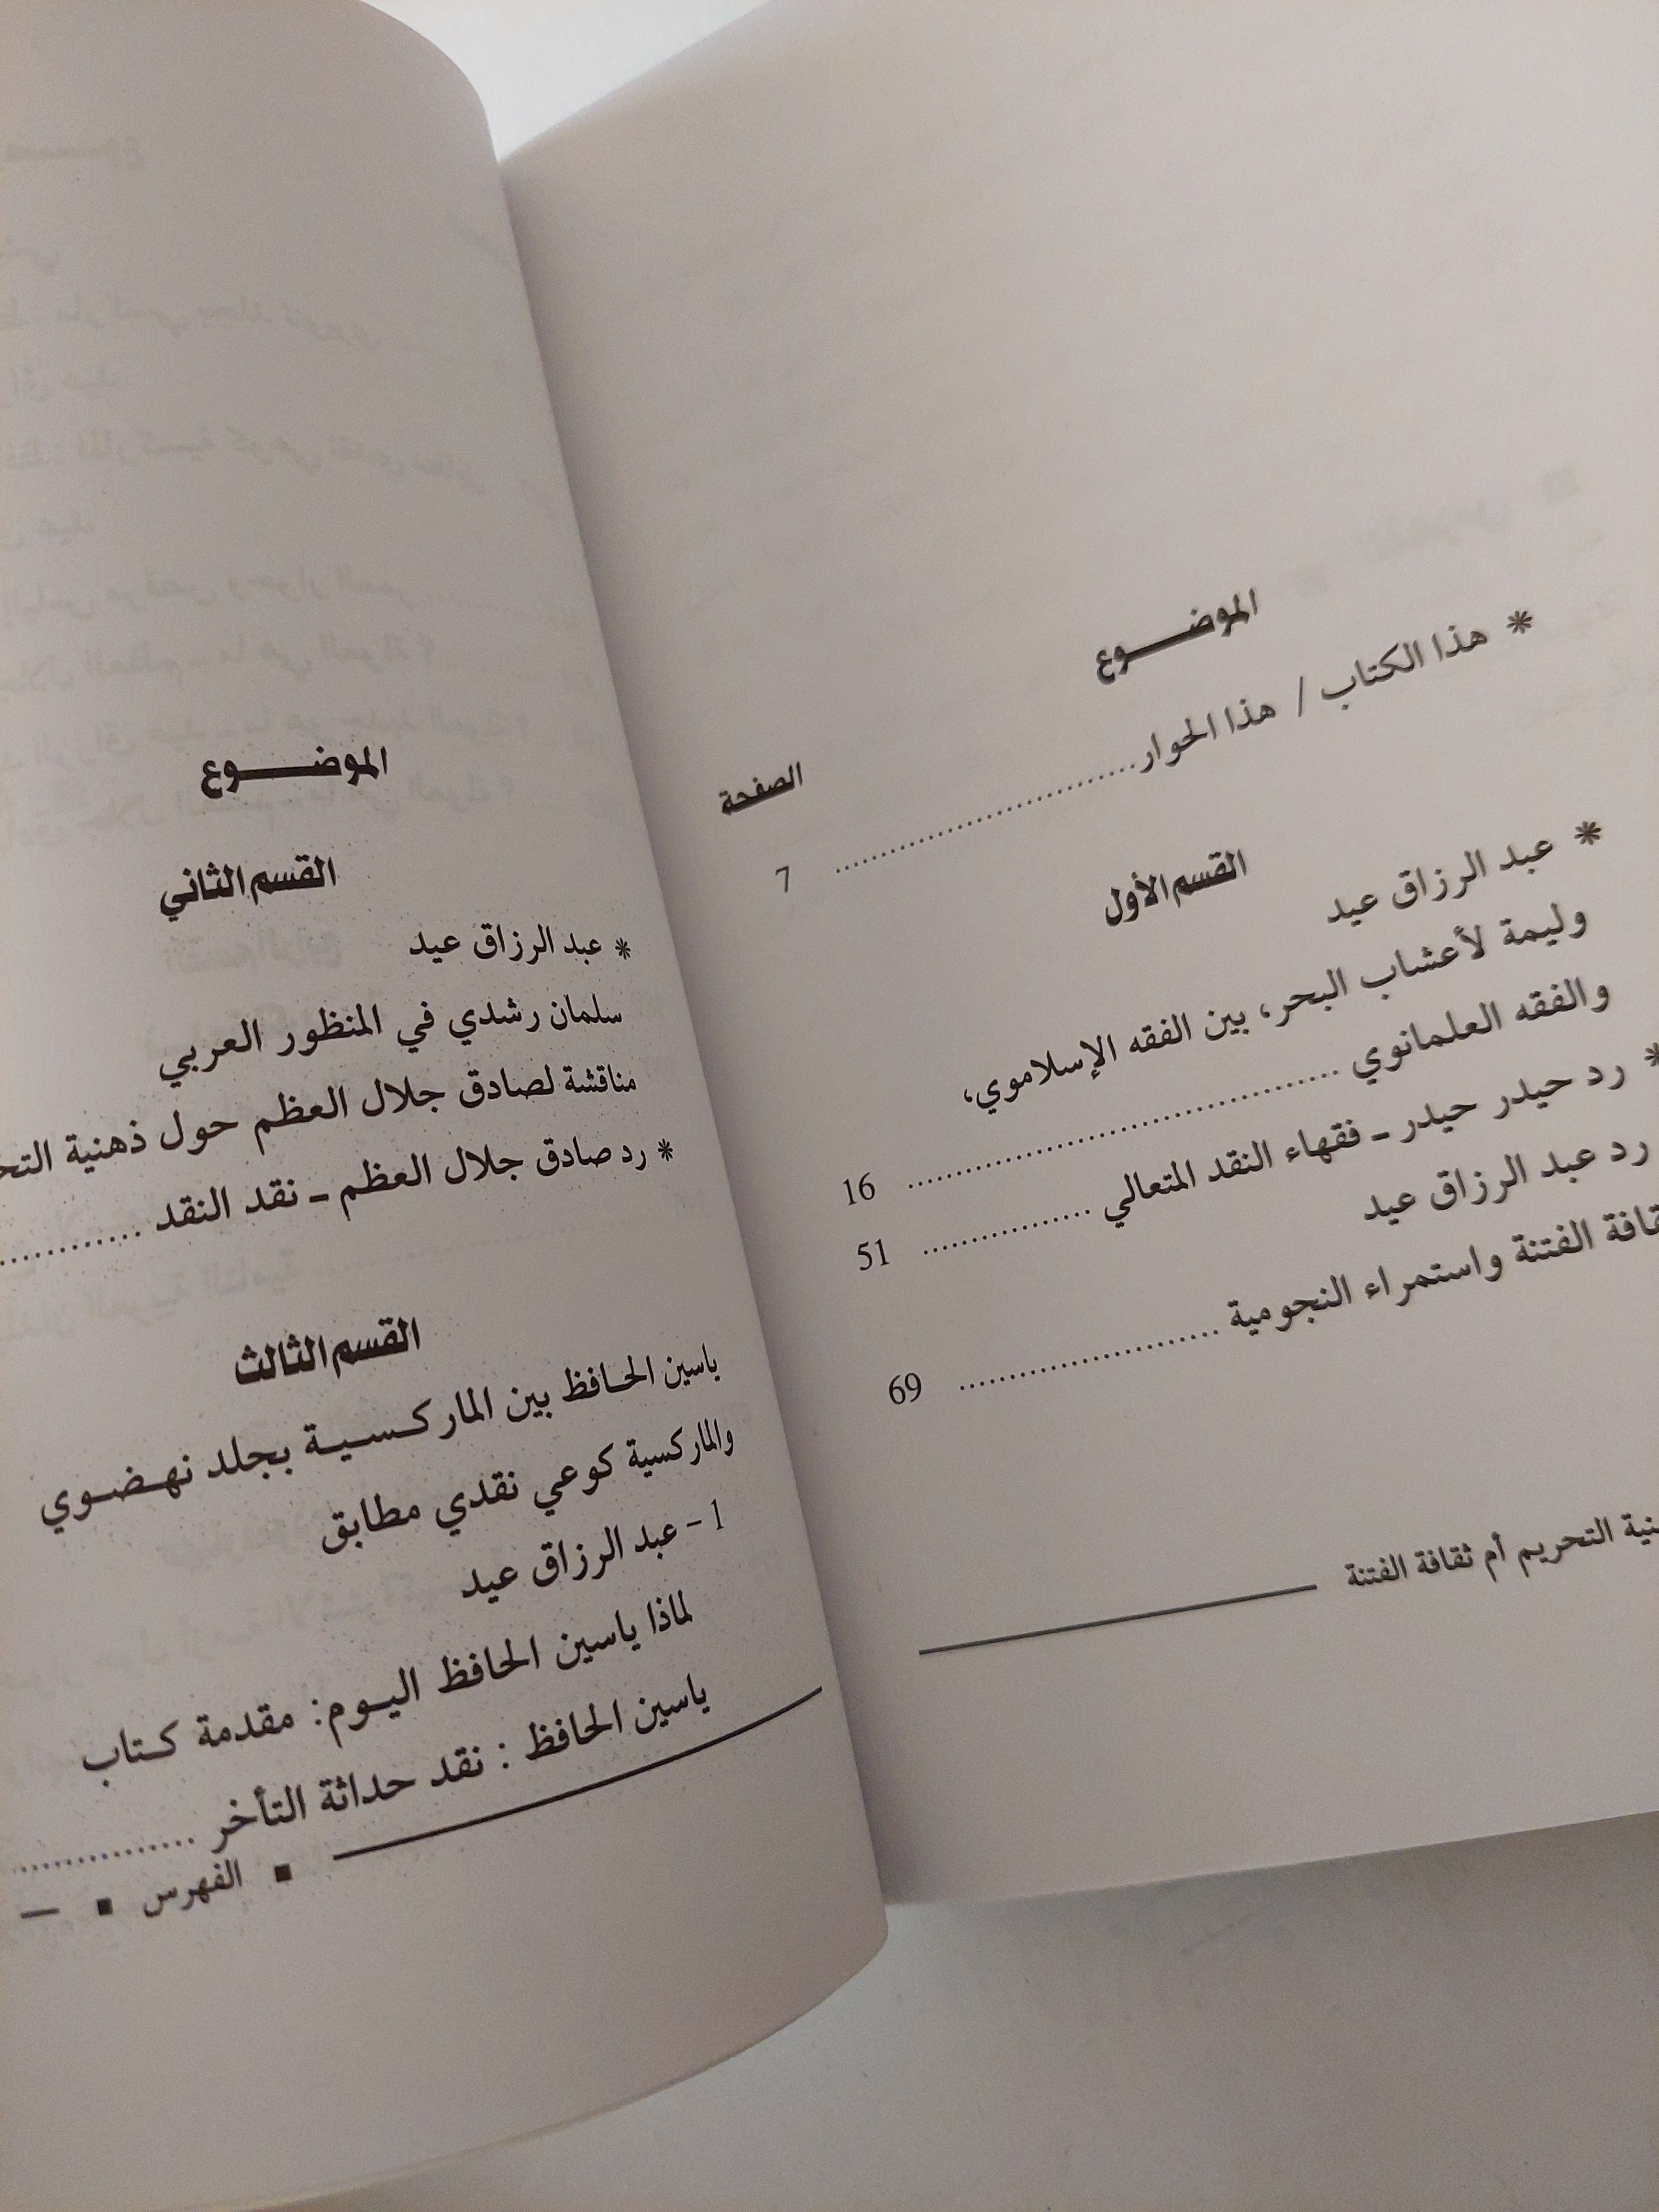 الموضـــــوع
الصفحة
* هذا الكتاب / هذا الحوار ........................ 7
القسم الأول
* عبد الرزاق عيد
وليمة لأعشاب البحر، بين الفقه الإسلاموي،
والفقه العلمانوي ........................ 16
* رد حيدر حيدر ـ فقهاء النقد المتعالي ................ 51
رد عبد الرزاق عيد
الفتنة واستمراء النجومية ........................ 69
التحريم أم ثقافة الفتنة
الموضـــــوع
القسم الثاني
* عبد الرزاق عيد
سلمان رشدي في المنظور العربي
مناقشة لصادق جلال العظم حول ذهنية
* رد صادق جلال العظم ـ نقد النقد ............
القسم الثالث
ياسين الحـافظ بين الماركـسـيـة بجلد نهـضـوي
والماركسية كوعي نقدي مطابق
1 - عبد الرزاق عيد
لماذا ياسين الحافظ اليـوم: مقدمة كـتاب
ياسين الحافظ : نقد حداثة التأخر ................
■ الفهرس ■